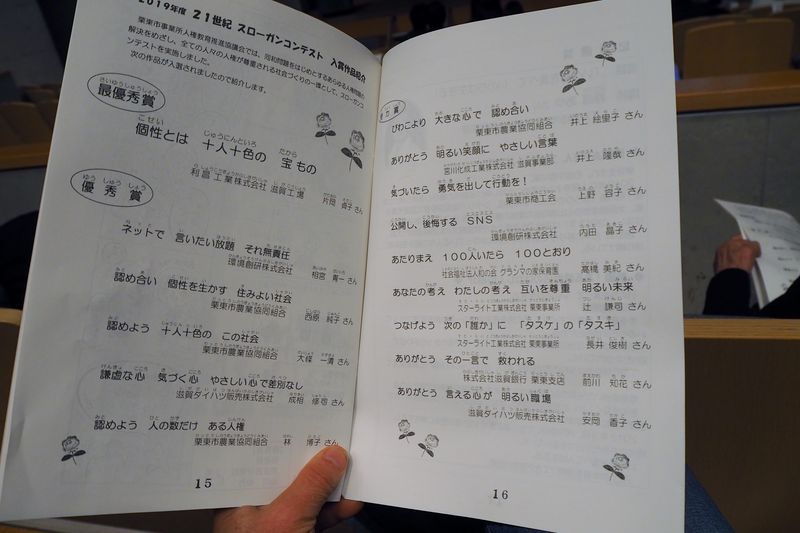 2019年度 21世紀 スローガンコンテスト 入賞作品紹介
栗東市事業所人権教育推進協議会では、同和問題をはじめとするあらゆる人権問題の
解決をめざし、全ての人々の人権が尊重される社会づくりの一環として、スローガンコ
ンテストを実施しました。
次の作品が入選されましたので紹介します。
さいゆうしゅうしょう
最優秀賞
こせい じゅうにんといろ たから
個性とは 十人十色の 宝もの
利昌工業株式会社 滋賀工場 片岡 貞子さん
ゆうしゅうしょう
優秀賞
ネットで 言いたい放題 それ無責任
環境創研株式会社 相宮 青一さん
認め合い 個性を生かす 住みよい社会
栗東市農業協同組合 西原 純子さん
認めよう 十人十色の この社会
栗東市農業協同組合 大條 一清さん
謙虚な心 気づく心 やさしい心で差別なし
滋賀ダイハツ販売株式会社 成相 修司さん
認めよう 人の数だけ ある人権
栗東市農業協同組合 林 博子さん
15
びわこより 大きな心で 認め合い
栗東市農業協同組合 井上 絵里子さん
ありがとう 明るい笑顔に やさしい言葉
宮川化成工業株式会社 滋賀事業部 井上 隆哉さん
気づいたら 勇気を出して行動を!
栗東市商工会 上野 容子さん
公開し、後悔する SNS
環境創研株式会社 内田 晶子さん
あたりまえ 100人いたら 100とおり
社会福祉法人和の会 グラシマの家保育園 髙橋 美紀さん
あなたの考え わたしの考え 互いを尊重 明るい未来
スターライト工業株式会社 栗東事業所 辻 謙司さん
つなげよう 次の「誰か」に 「タスケ」の「タスキ」
スターライト工業株式会社 栗東事業所 長井 俊樹さん
ありがとう その一言で 救われる
株式会社滋賀銀行 栗東支店 前川 知花さん
ありがとう 言える心が 明るい職場
滋賀ダイハツ販売株式会社 安岡 香子さん
16